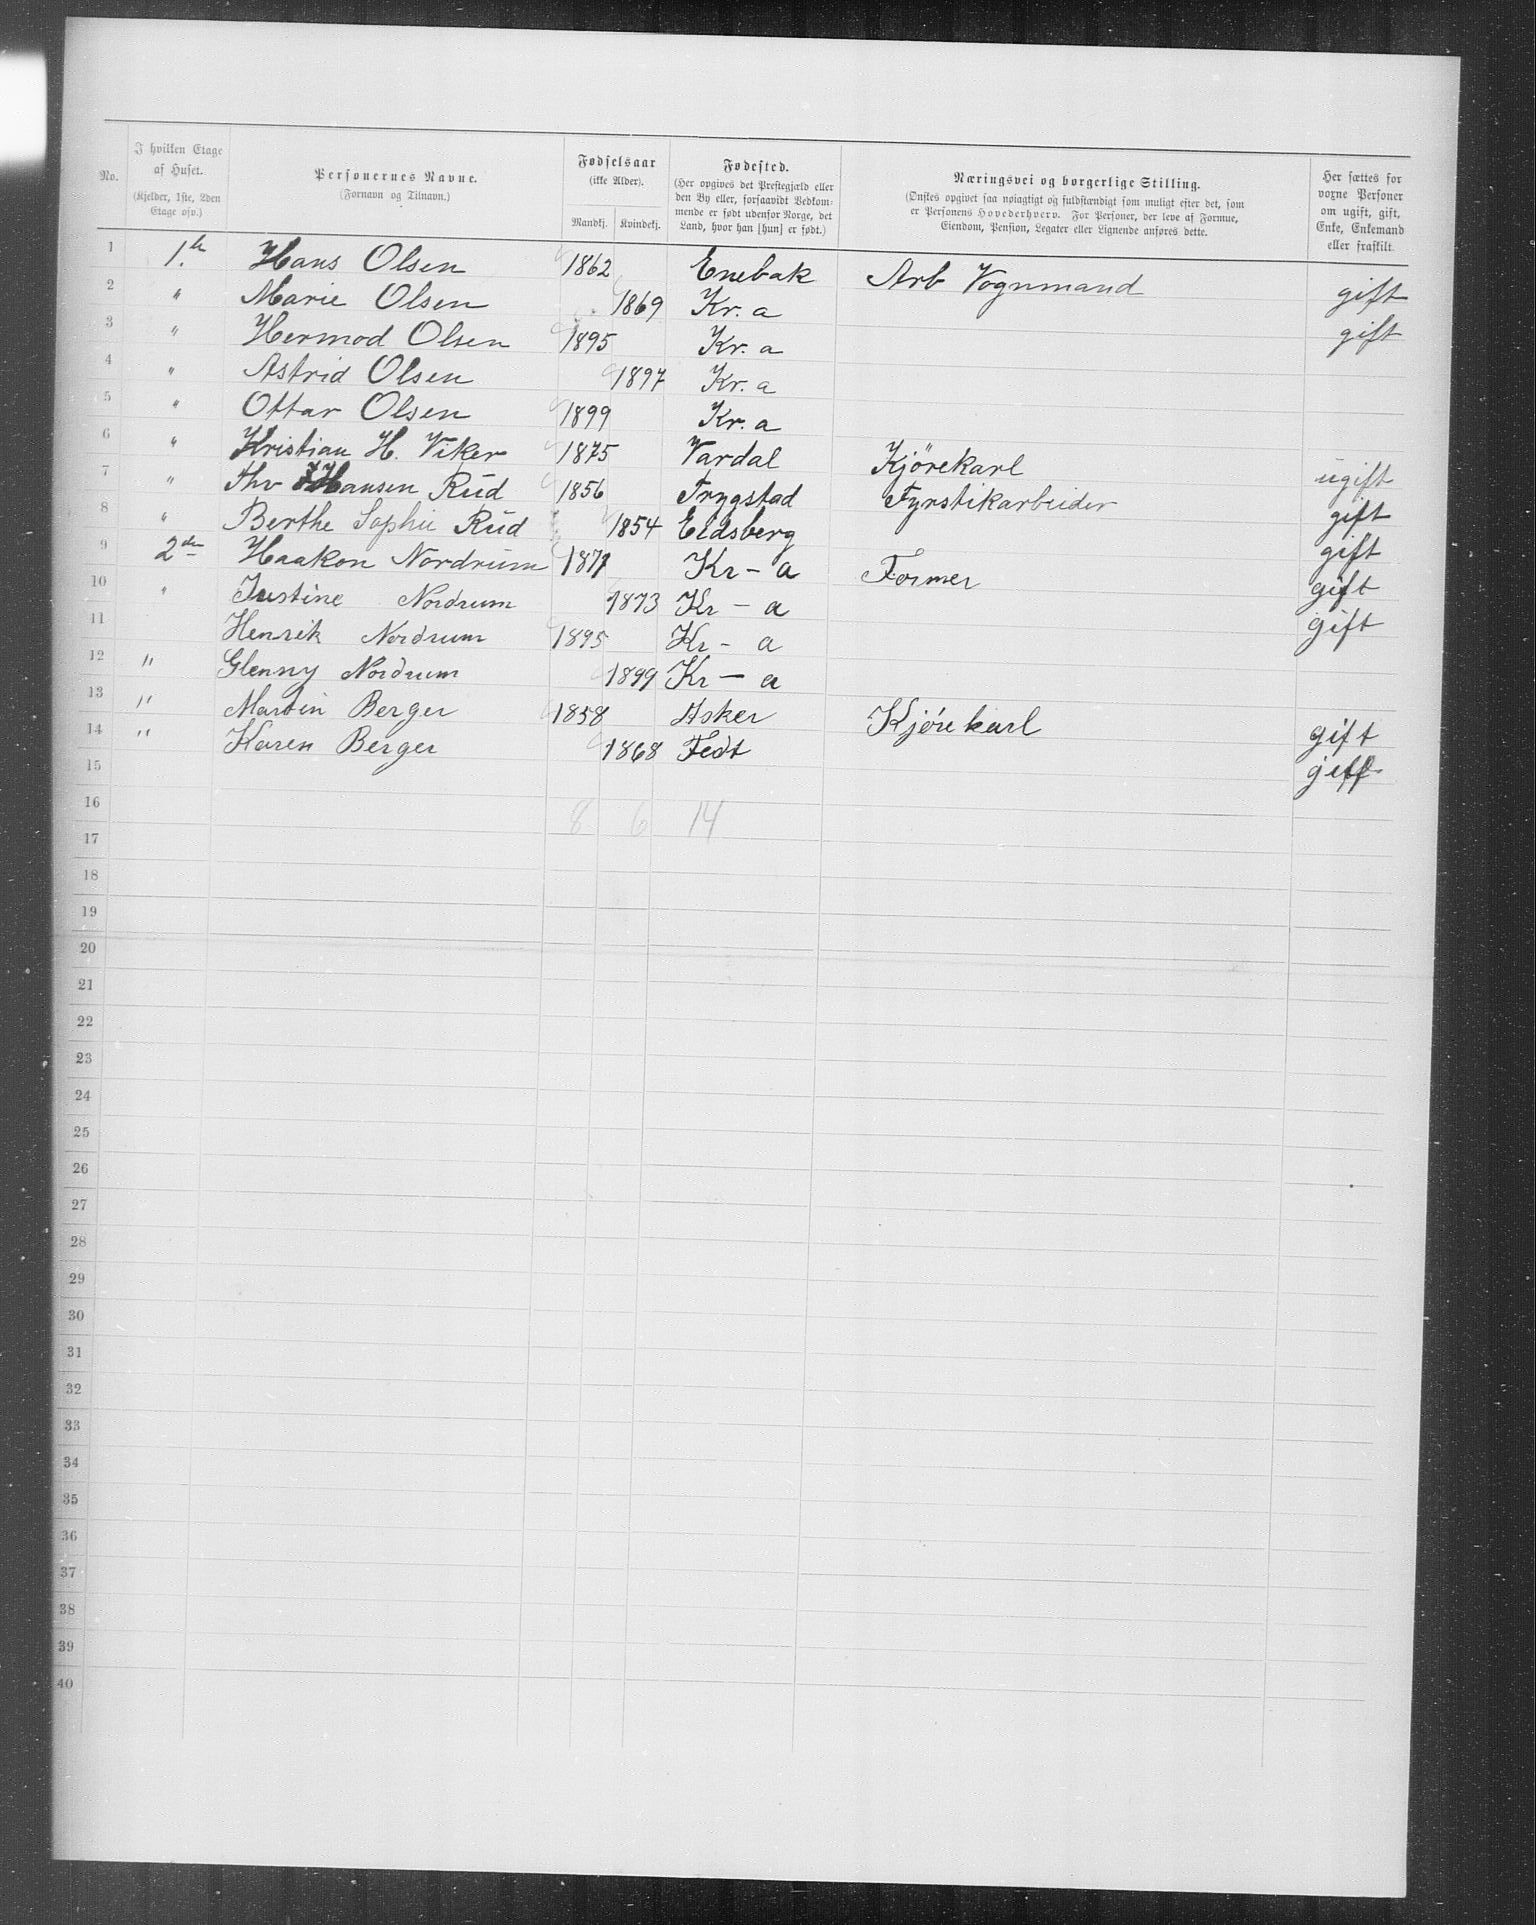 No.	I hvilken Etage af Huset. (Kjelder, 1ste, 2den Etage osv.)	Personernes Navne. (Fornavn og Tilnavn.)	Fødselsaar (ikke Alder). Mandkj. Kvindekj.	Fødested. (Her opgives det Prestegjæld eller den By eller, forsaavidt Vedkommende er født udenfor Norge, det Land, hvor han [hun] er født.)	Næringsvei og borgerlige Stilling. (Ønskes opgivet saa nøiagtigt og fuldstændigt som muligt efter det, som er Personens Hovederhverv. For Personer, der leve af Formue, Eiendom, Pension, Legater eller Lignende anføres dette.)	Her sættes for voxne Personer om ugift, gift, Enke, Enkemand eller fraskilt.
1 1. Hans Olsen 1862 Enebak Arb Vognmand gift
2 " Marie Olsen 1869 Kr. a gift
3 " Hermod Olsen 1895 Kr. a
4 " Astrid Olsen 1897 Kr. a
5 " Ottar Olsen 1899 Kr. a
6 " Kristian H. Viker 1875 Vardal Kjörekarl ugift
7 " Thv Hansen Rud 1856 Trygstad Fyrstikarbeider gift
8 " Berthe Sophie Rud 1854 Eidsberg gift
9 2den Haakon Nordrum 1871 Kr - a Former gift
10 " Justine Nordrum 1873 Kr - a gift
11 Henrik Nordrum 1895 Kr - a
12 " Glenny Nordrum 1899 Kr - a
13 " Martin Berger 1858 Asker Kjörekarl gift
14 " Karen Berger 1868 Fedt gift
15
16 8 6 14
17
18
19
20
21
22
23
24
25
26
27
28
29
30
31
32
33
34
35
36
37
38
39
40